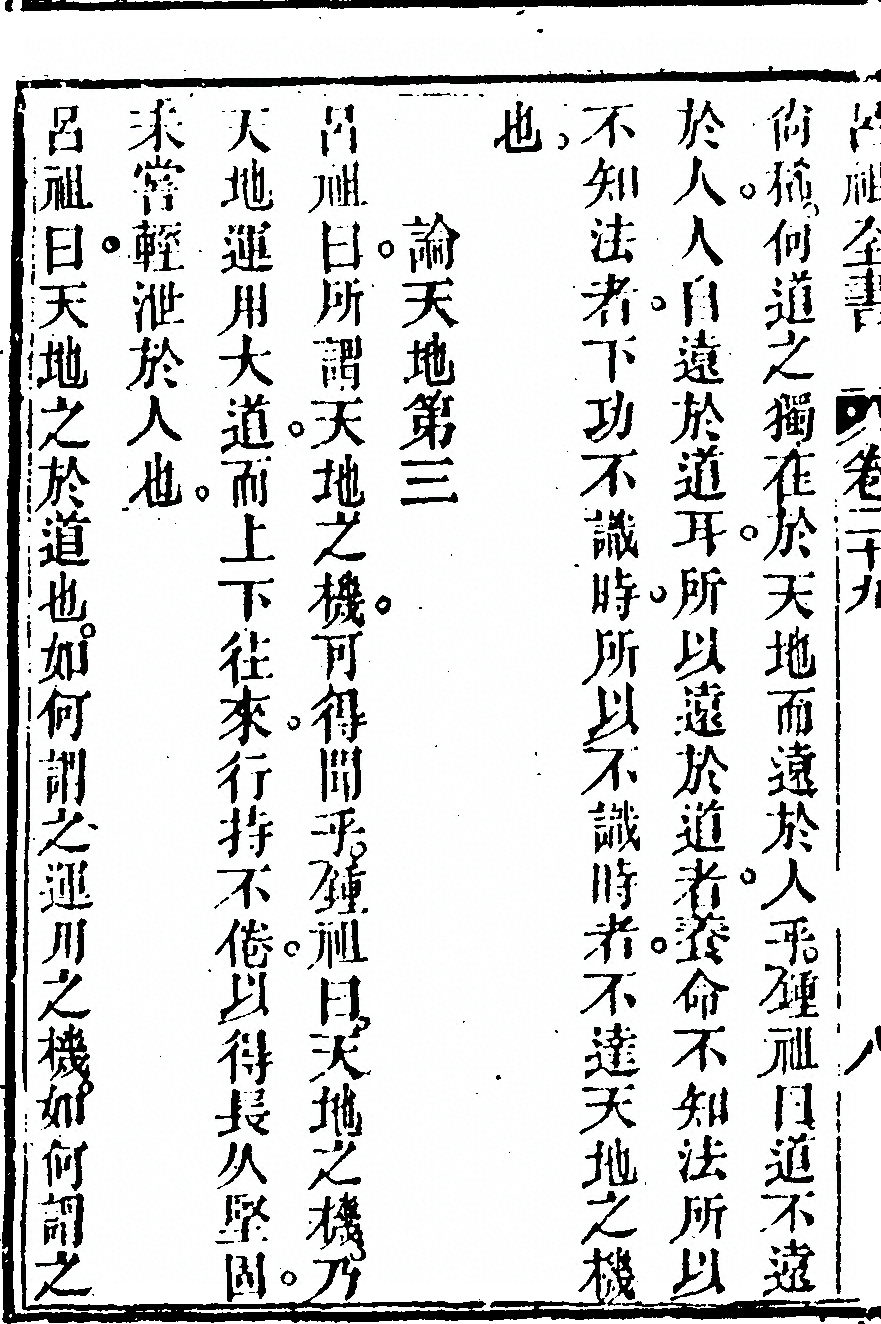 呂祖全書 卷二十九 八
尙猶。何道之獨在於天地而遠於人乎。鍾祖曰道不遠
於人。人自遠於道耳。所以遠於道者。養命不知法所以
不知法者。下功不識時。所以不識時者。不達天地之機
也。
論天地第三
呂祖曰。所謂天地之機。可得聞乎。鍾祖曰。天地之機。乃
天地運用大道。而上下往來。行持不倦。以得長久堅固。
未嘗輕泄於人也。
呂祖曰。天地之於道也。如何謂之運用之機。如何謂之